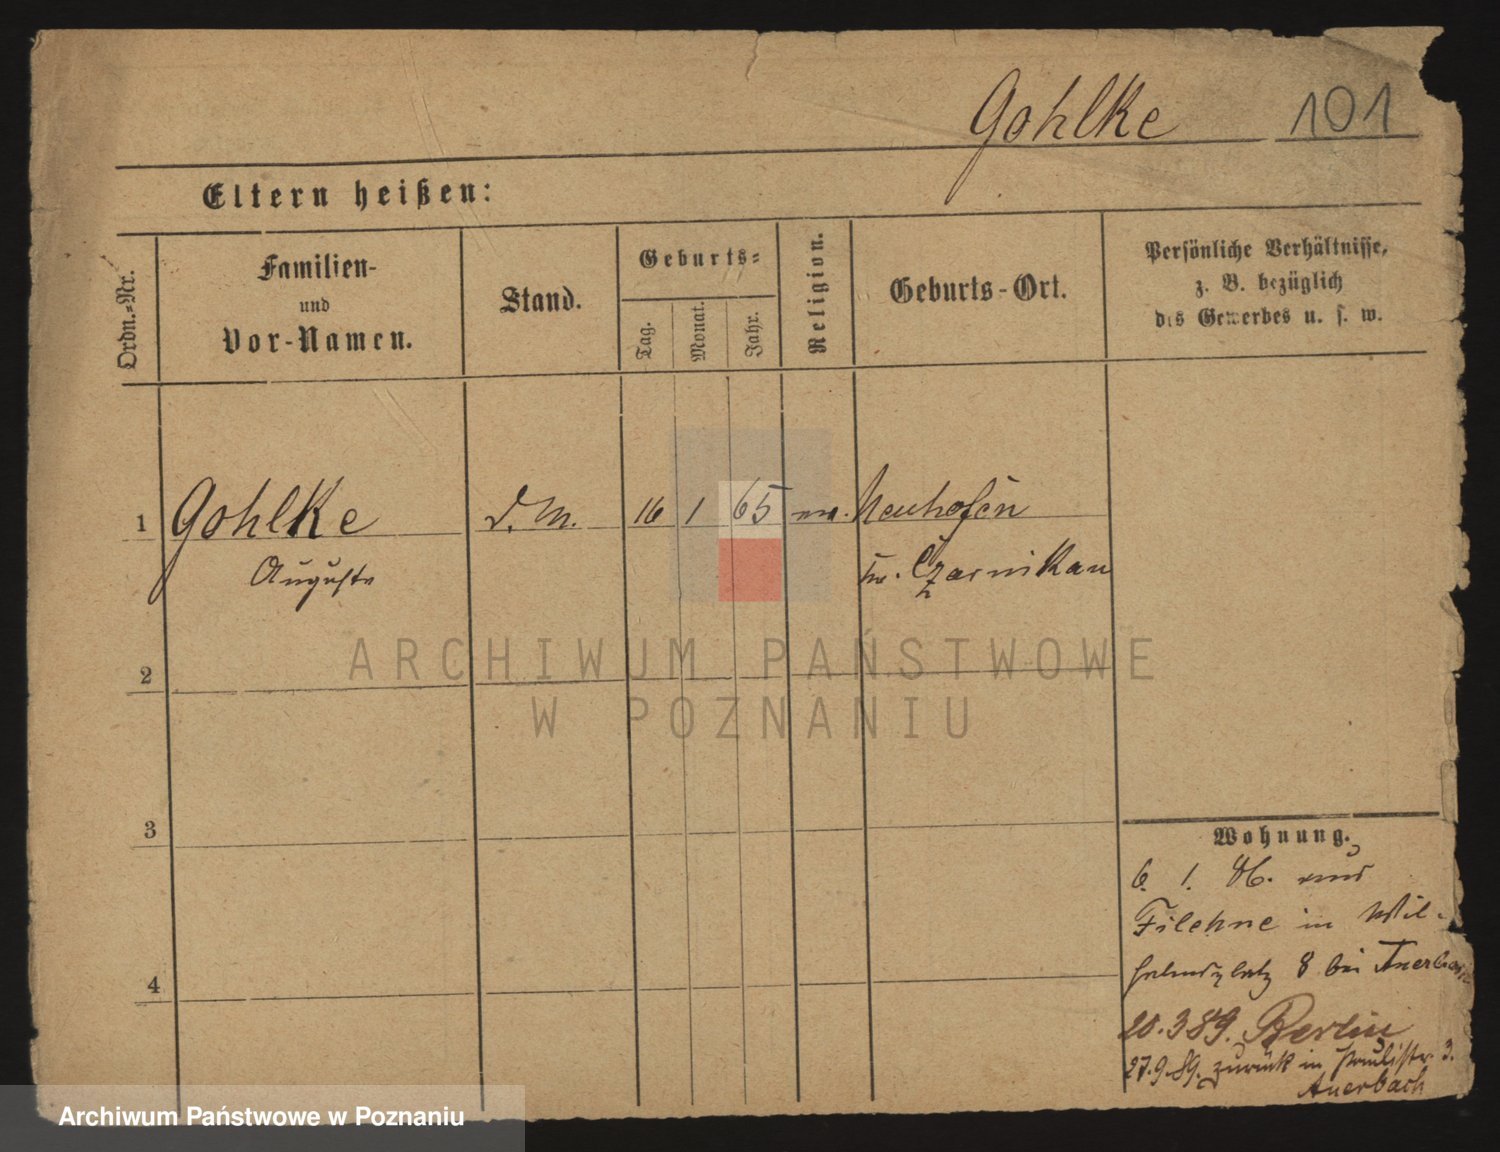 Gohlke 101
Eltern heißen:
Ordn.-Nr.
Familien-
und
Vor-Namen.
Stand.
Geburts-
Tag.
Monat.
Jahr.
Religion.
Geburts-Ort.
Persönliche Verhältnisse,
z. B. bezüglich
des Gewerbes u. s. w.
1 Gohlke d. M. 16 1 65 Neuhofen
Auguste Czarnikau
2
3
4
Wohnung.
6. 1. 86. aus
Filehne in Wil-
helmsplatz 8 bei Auerbach
20.3 89. Berlin
27.9.89. zurück in Paulistr. 3.
Auerbach
ARCHIWUM PAŃSTWOWE
W POZNANIU
Archiwum Państwowe w Poznaniu